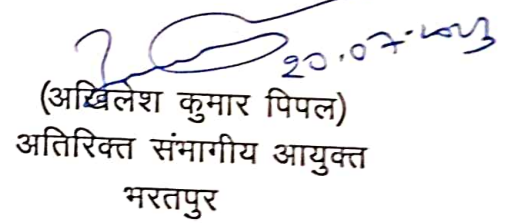 20.07.2023
(अखिलेश कुमार पिपल)
अतिरिक्त संभागीय आयुक्त
भरतपुर